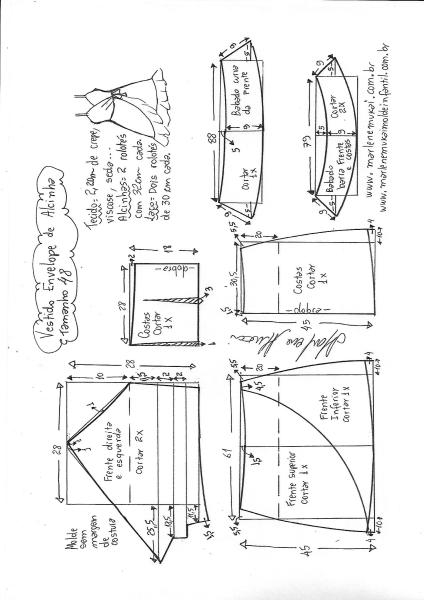 Vestido Envelope de Alcinha
Tamanho 48
Tecido= 2,20m de crepe,
viscose, seda...
Alcinhas= 2 rolotês
com 32cm cada.
Laço= Dois rolotês
de 30cm cada.
88
6
5
Babado curva
da Frente
Cortar 1x
5
6
5
6
79
6
5
Cortar
2x
5
6
Babado
barra Frente
e costas
5
6
www.marlenemukai.com.br
www.marlenemukaimoldeinfantil.com.br
28
18
2
dobra
Costas
Cortar
1x
3
1
5,5
20
30,5
Costas
Cortar
1x
dobra
45
4
28
10
28
1
Frente direita
e esquerda
Cortar 2x
2
25,5
Molde
sem
margem
de
costura
5,5
20
61
15
Frente
Inferior
Cortar 1x
Frente superior
Cortar 1x
5,5
45
4